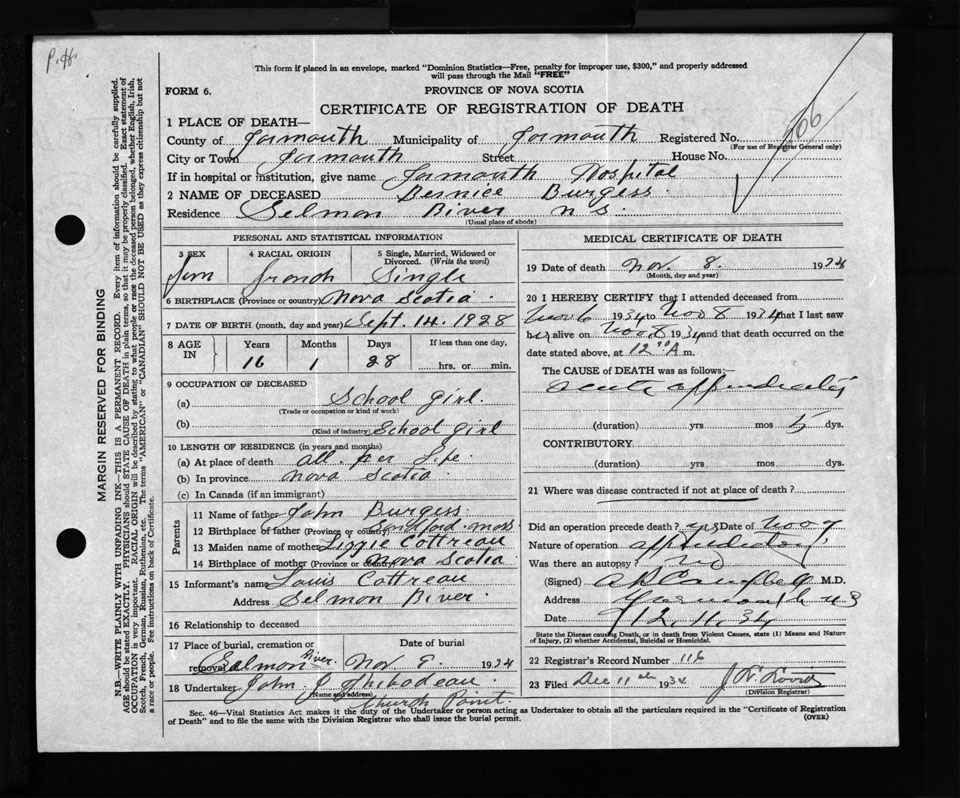 P.H.
This form if placed in an envelope, marked "Dominion Statistics—Free, penalty for improper use, $300," and properly addressed
will pass through the Mail "FREE"
FORM 6.
PROVINCE OF NOVA SCOTIA
CERTIFICATE OF REGISTRATION OF DEATH
1 PLACE OF DEATH—
County of Yarmouth Municipality of Yarmouth Registered No.
(For use of Registrar General only)
City or Town Yarmouth Street House No.
If in hospital or institution, give name Yarmouth Hospital
2 NAME OF DECEASED Bernice Burgess
Residence Selmon River N S.
(Usual place of abode)
PERSONAL AND STATISTICAL INFORMATION
3 SEX 4 RACIAL ORIGIN 5 Single, Married, Widowed or
Divorced. (Write the word)
Fem French Single
6 BIRTHPLACE (Province or country) Nova Scotia
7 DATE OF BIRTH (month, day and year) Sept. 14. 1928
8 AGE IN Years Months Days If less than one day,
16 1 28 hrs. or min.
9 OCCUPATION OF DECEASED
(a) School girl.
(Trade or occupation or kind of work)
(b) School girl
(Kind of industry)
10 LENGTH OF RESIDENCE (in years and months)
(a) At place of death all her Life
(b) In province Nova Scotia
(c) In Canada (if an immigrant)
Parents
11 Name of father John Burgess
12 Birthplace of father (Province or country) Sandford. Mass
13 Maiden name of mother Lizzie Cottreau
14 Birthplace of mother (Province or country) Nova Scotia
15 Informant's name Louis Cottreau
Address Selmon River.
16 Relationship to deceased
17 Place of burial, cremation or Date of burial
removal Salmon River. Nov 9. 1934
18 Undertaker John J Thibodeau
(Name and address) Church Point.
MEDICAL CERTIFICATE OF DEATH
19 Date of death Nov. 8. 1934
(Month, day and year)
20 I HEREBY CERTIFY that I attended deceased from
Nov 6 1934 to Nov 8 1934 that I last saw
her alive on Nov 8 1934 and that death occurred on
date stated above, at 12 A m.
The CAUSE of DEATH was as follows:—
acute appendicitis
(duration) yrs mos 5 dys.
CONTRIBUTORY
(duration) yrs mos dys.
21 Where was disease contracted if not at place of death?
Did an operation precede death? yes Date of Nov 7
Nature of operation appendectomy
Was there an autopsy?
(Signed) Campbell M.D.
Address Yarmouth N S
Date 12. 11. 34
State the Disease causing Death, or in death from Violent Causes, state (1) Means and Nature
of Injury, (2) whether Accidental, Suicidal or Homicidal.
22 Registrar's Record Number 116
23 Filed Dec 11th 1934
(Division Registrar)
Sec. 46—Vital Statistics Act makes it the duty of the Undertaker or person acting as Undertaker to obtain all the particulars required in the "Certificate of Registration
of Death" and to file the same with the Division Registrar who shall issue the burial permit. (OVER)
MARGIN RESERVED FOR BINDING
N.B.—WRITE PLAINLY WITH UNFADING INK—THIS IS A PERMANENT RECORD. Every item of information should be carefully supplied.
AGE should be stated EXACTLY. PHYSICIANS should STATE CAUSE OF DEATH in plain terms, so that it may be properly classified. Exact statement of
OCCUPATION is very important. RACIAL ORIGIN will be described by stating to what people or race the deceased person belonged, whether English, Irish,
Scotch, French, German, Russian, Ruthenian, etc. The terms "AMERICAN" or "CANADIAN" SHOULD NOT BE USED as they express citizenship but not
a race or people. See instructions on back of Certificate.